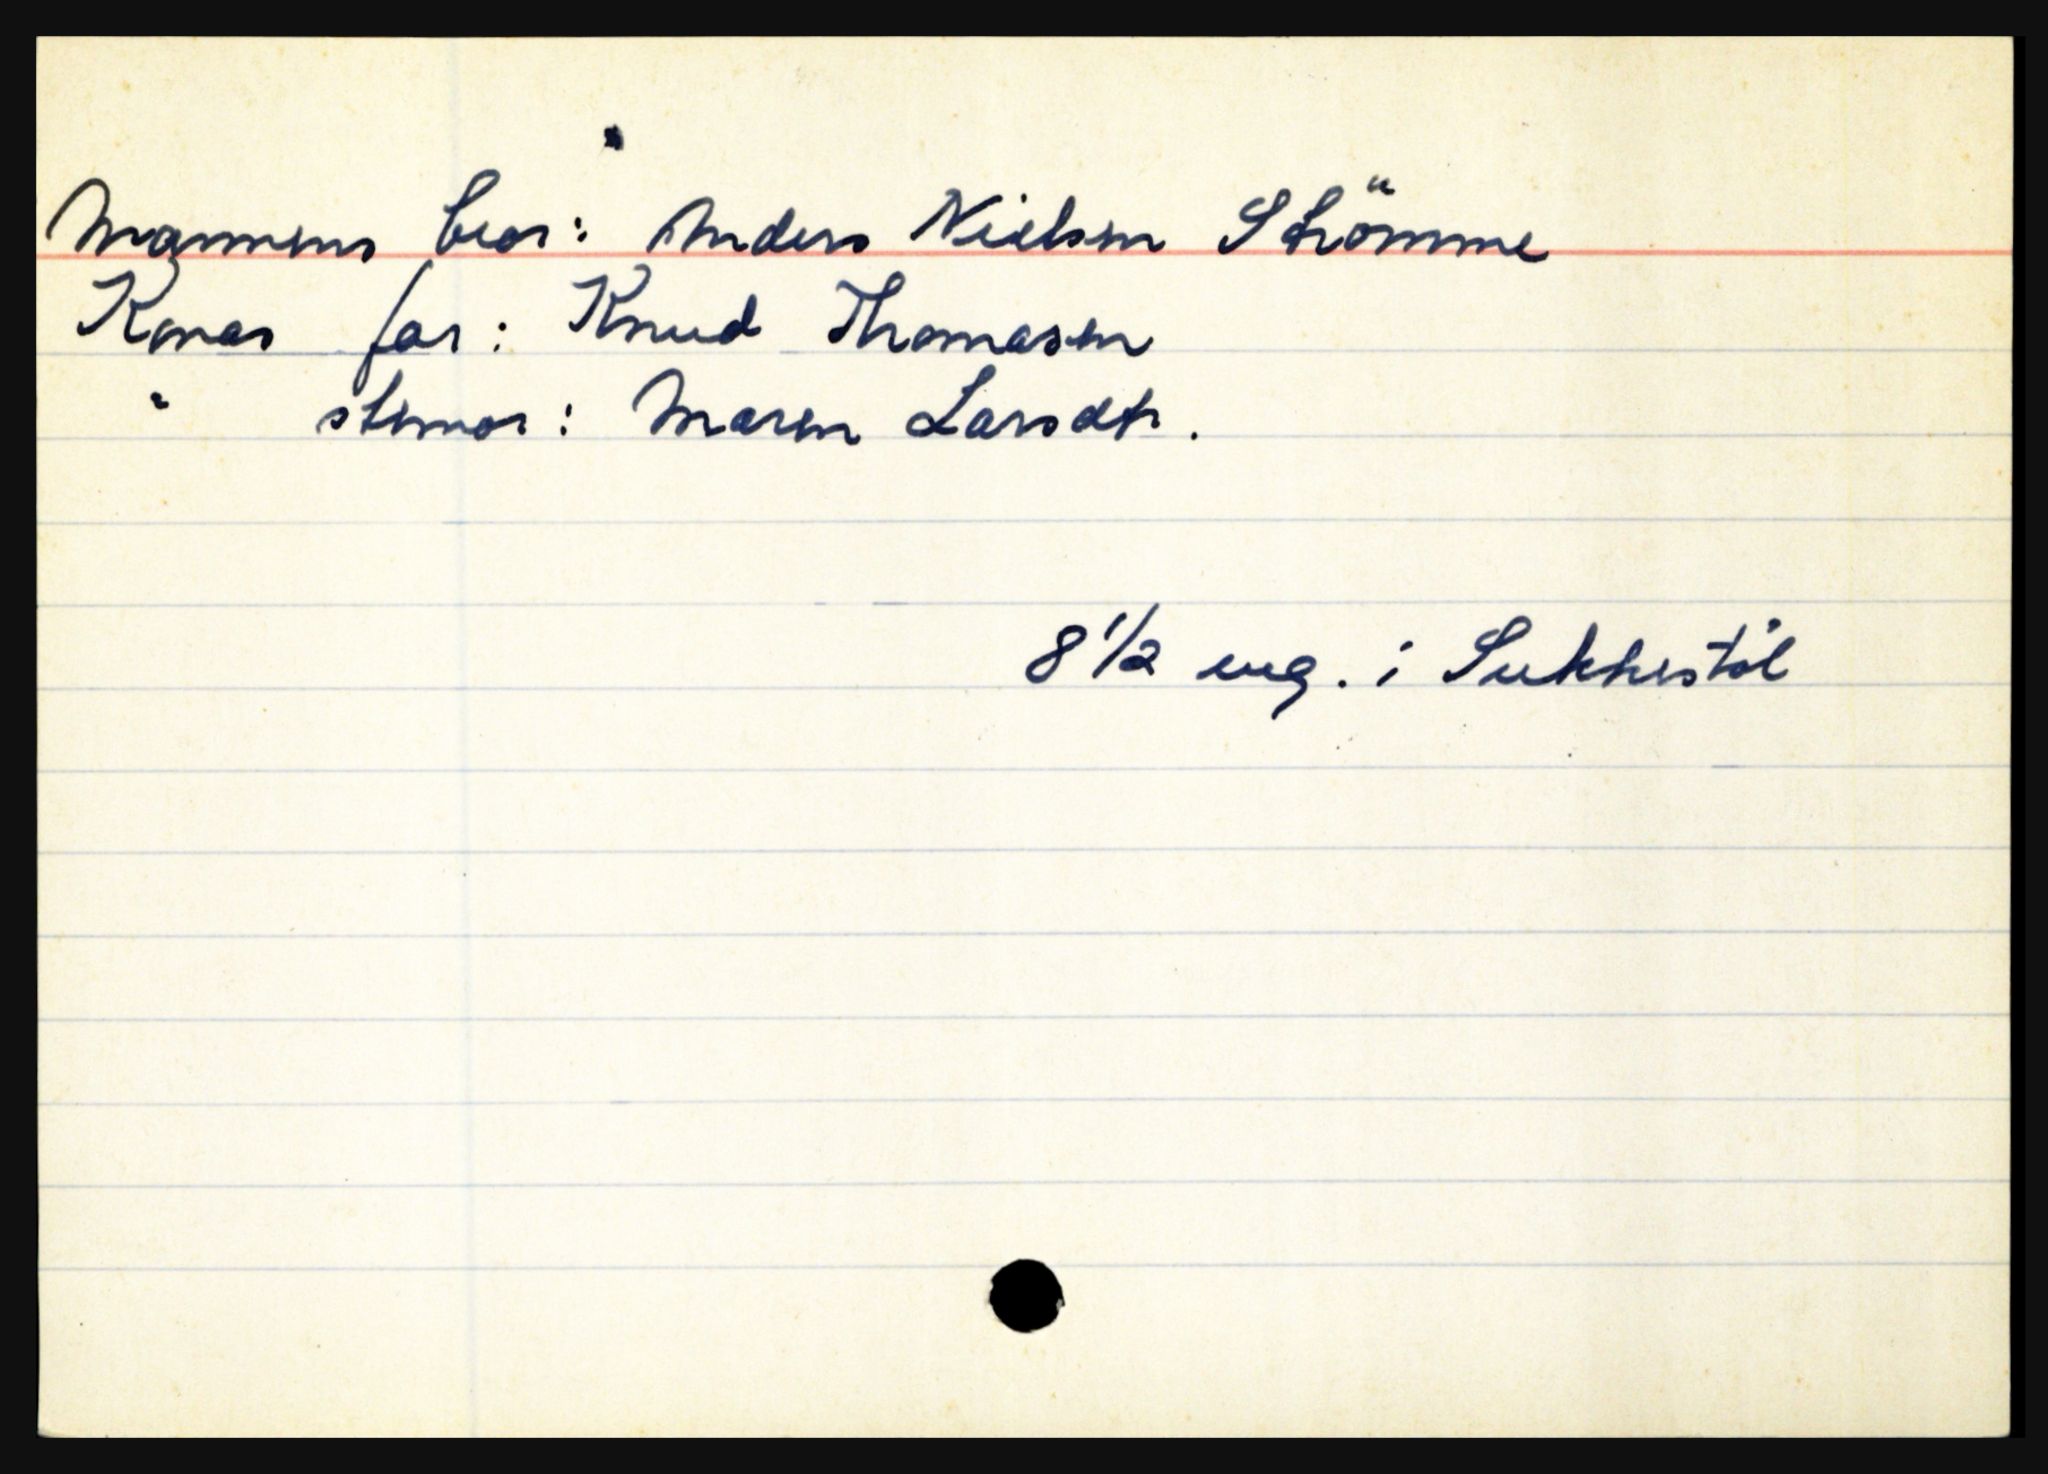 Mannens bror: Anders Nielsen Strömme
Konas far: Knud Thomasen
" stemor: Maren Larsdtr.
8 1/2 eng. i Sukkestöl